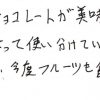 ョコレートが美味
って使い分けてい
多度フルーツも食